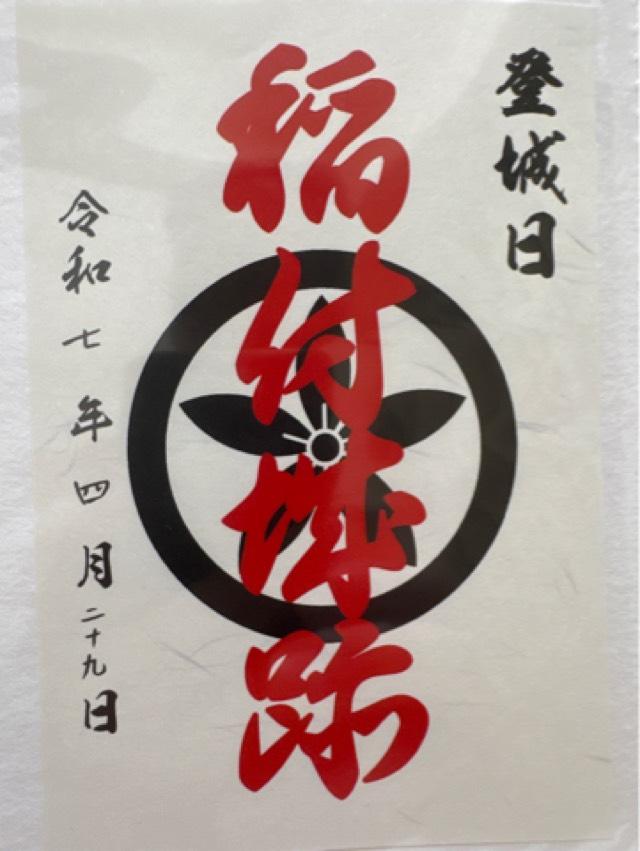 登城日
稲付城跡
令和七年四月二十九日